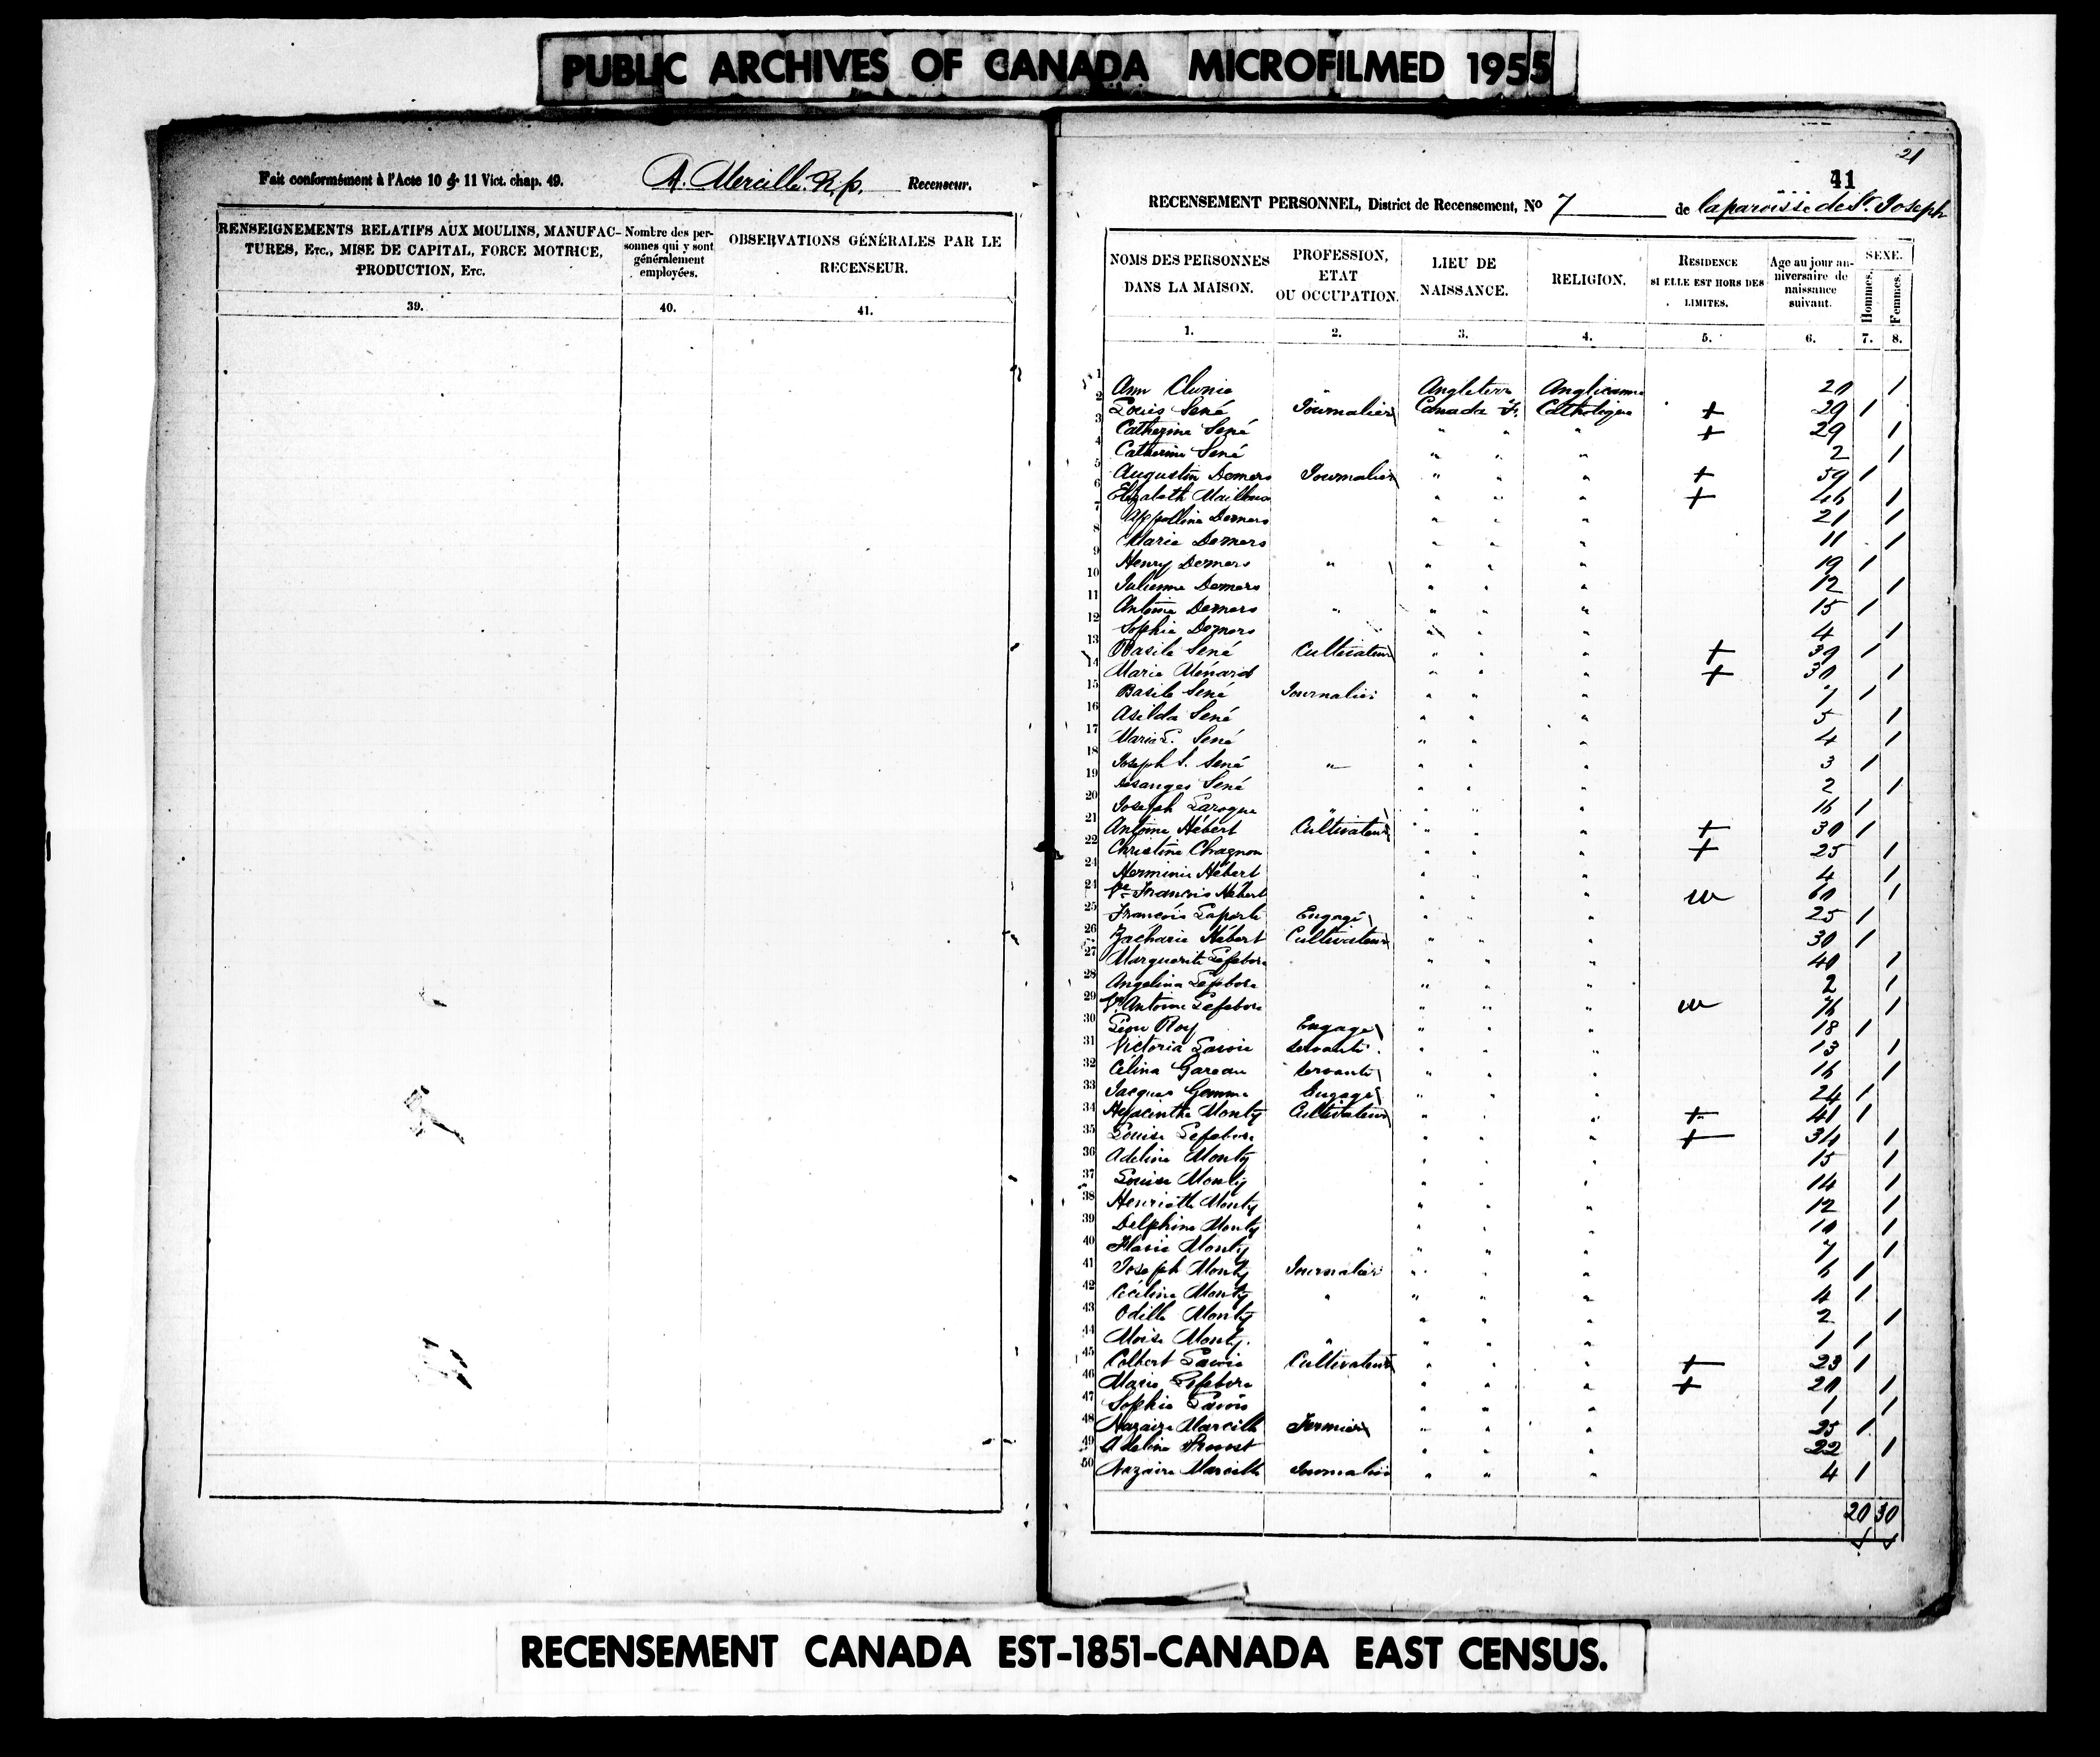 PUBLIC ARCHIVES OF CANADA MICROFILMED 1955
Fait conformément à l'Acte 10 & 11 Vict. chap. 49. Recenseur.
RENSEIGNEMENTS RELATIFS AUX MOULINS, MANUFACTURES, Etc., MISE DE CAPITAL, FORCE MOTRICE, PRODUCTION, Etc.
Nombre des personnes qui y sont généralement employées.
OBSERVATIONS GÉNÉRALES PAR LE RECENSEUR.
39. 40. 41.
21
41
RECENSEMENT PERSONNEL, District de Recensement, No 7 de la paroisse de St. Joseph
NOMS DES PERSONNES DANS LA MAISON.
PROFESSION, ETAT OU OCCUPATION.
LIEU DE NAISSANCE.
RELIGION.
RESIDENCE SI ELLE EST HORS DES LIMITES.
Age au jour anniversaire de naissance suivant.
SEXE.
Hommes. Femmes.
1. 2. 3. 4. 5. 6. 7. 8.
1 Ann Angleterre Anglicanne 20 1
2 Louis Sené Journalier Canada F. Catholique + 29 1
3 Catherine Sené " " " + 29 1
4 Catherine Sené " " " 2 1
5 Augustin Demers Journalier " " " + 59 1
6 Elizabeth " " " + 46 1
7 Appolline Demers " " " 21 1
8 Marie Demers " " " 11 1
9 Henry Demers " " " " 19 1
10 Julienne Demers " " " 12 1
11 Antoine Demers " " " " 15 1
12 Sophie Demers " " " 4 1
13 Basile Sené Cultivateur " " " + 39 1
14 Marie Ménard " " " + 30 1
15 Basile Sené Journalier " " " 7 1
16 Asilda Sené " " " 5 1
17 Marie L. Sené " " " 4 1
18 Joseph S. Sené " " " " 3 1
19 Desanges Sené " " " 2 1
20 Joseph Laroque " " " " 16 1
21 Antoine Hébert Cultivateur " " " + 30 1
22 Christine Chagnon " " " + 25 1
23 Herminie Hébert " " " 4 1
24 Ve François Hébert " " " 60 1
25 François Laporte Engagé " " " 25 1
26 Zacharie Hébert Cultivateur " " " 30 1
27 Marguerite Lefebvre " " " 40 1
28 Angelina Lefebvre " " " 2 1
29 Ve Antoine Lefebvre " " " 76 1
30 Léon Roy Engagé " " " 18 1
31 Victoria Lavoie servante " " " 13 1
32 Célina Gareau servante " " " 16 1
33 Jacques Gemme Engagé " " " 24 1
34 Hyacinthe Monty Cultivateur " " " + 41 1
35 Louise Lefebvre " " " + 34 1
36 Adeline Monty " " " 15 1
37 Louise Monty " " " 14 1
38 Henriette Monty " " " 12 1
39 Delphine Monty " " " 10 1
40 Flavie Monty " " " 7 1
41 Joseph Monty Journalier " " " 6 1
42 Céciline Monty " " " " 4 1
43 Odille Monty " " " 2 1
44 Moïse Monty " " " " 1 1
45 Colbert Lavoie Cultivateur " " " + 23 1
46 Marie Lefebvre " " " + 20 1
47 Sophie Lavoie " " " 1 1
48 Nazaire Marcille Fermier " " " 25 1
49 Adeline Provost " " " 22 1
50 Nazaire Marcille Journalier " " " 4 1
20 30
RECENSEMENT CANADA EST-1851-CANADA EAST CENSUS.